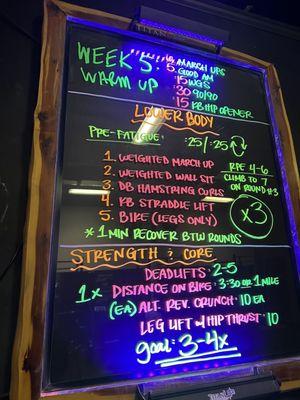 TITAN
WEEK 5:
WARM UP
MARCH UPS
5 GOOD AM
15 WGS
30 90/90
15 KB HIP OPENER
LOWER BODY
PRE-FATIGUE :25/:25
1. WEIGHTED MARCH UP
2. WEIGHTED WALL SIT
3. DB HAMSTRING CURLS
4. KB STRADDLE LIFT
5. BIKE (LEGS ONLY)
* 1 MIN RECOVER BTW ROUNDS
RPE 4-6
CLIMB TO 7
ON ROUND #3
x3
STRENGTH ? CORE
DEADLIFTS 2-5
1x DISTANCE ON BIKE 3:30 OR 1 MILE
(EA) ALT. REV. CRUNCH 10 EA
LEG LIFT w/ HIP THRUST 10
goal: 3-4x